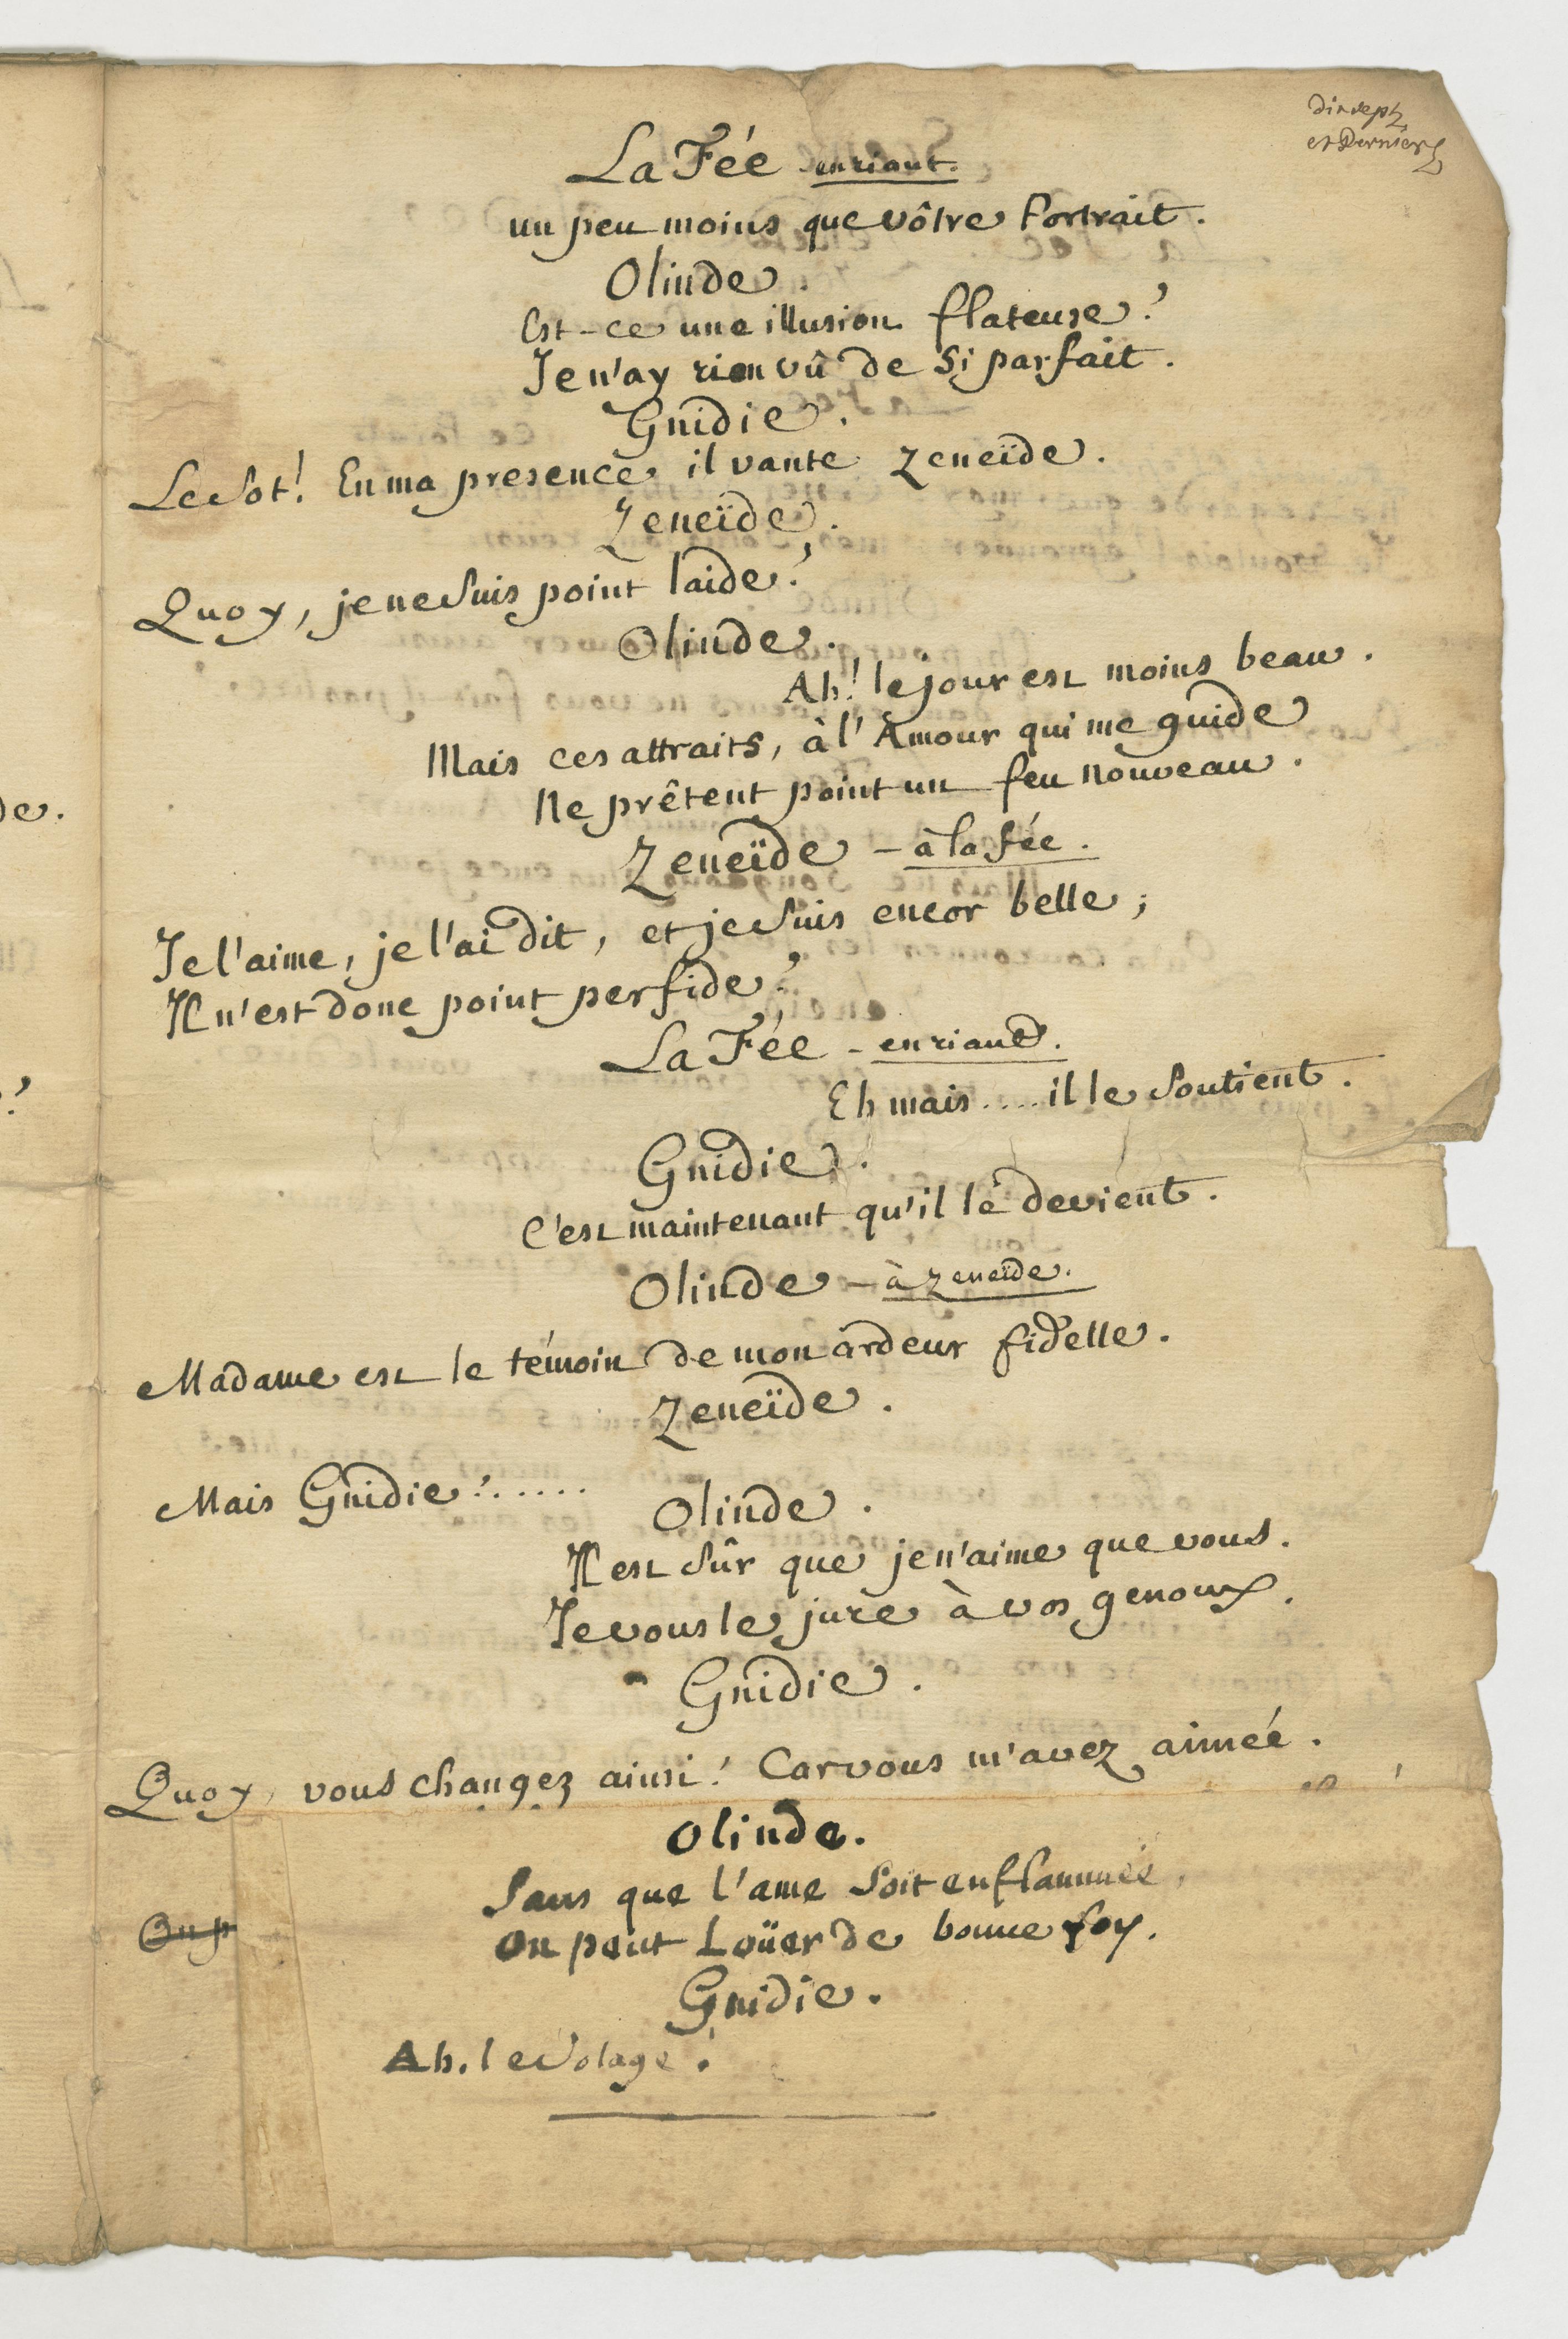 dix sept
et Dernier
La Fée en riant.
un peu moins que vôtre Portrait.
Olinde.
Est-ce une illusion flateuse?
Je n'ay rien vû de si parfait.
Gnidie.
Le sot! En ma presence il vante Zeneïde.
Zeneïde.
Quoy, je ne suis point laide?
Olinde.
Ah! le jour est moins beau.
Mais ces attraits, à l'Amour qui me guide
Ne prêtent point un feu nouveau.
Zeneïde - à la fée.
Je l'aime, je l'ai dit, et je suis encor belle;
Il n'est donc point perfide?
La Fée - en riant.
Eh mais .... il le soutient.
Gnidie.
C'est maintenant qu'il le devient.
Olinde - à Zeneïde.
Madame est le témoin de mon ardeur fidelle.
Zeneïde.
Mais Gnidie?.....
Olinde.
Il est sûr que je n'aime que vous.
Je vous le jure à vos genoux.
Gnidie.
Quoy, vous changez ainsi! Car vous m'avez aimée.
Olinde.
Sans que l'ame soit enflammée,
On p
On peut Loüer de bonne foy.
Gnidie.
Ah. le volage!
de.
?